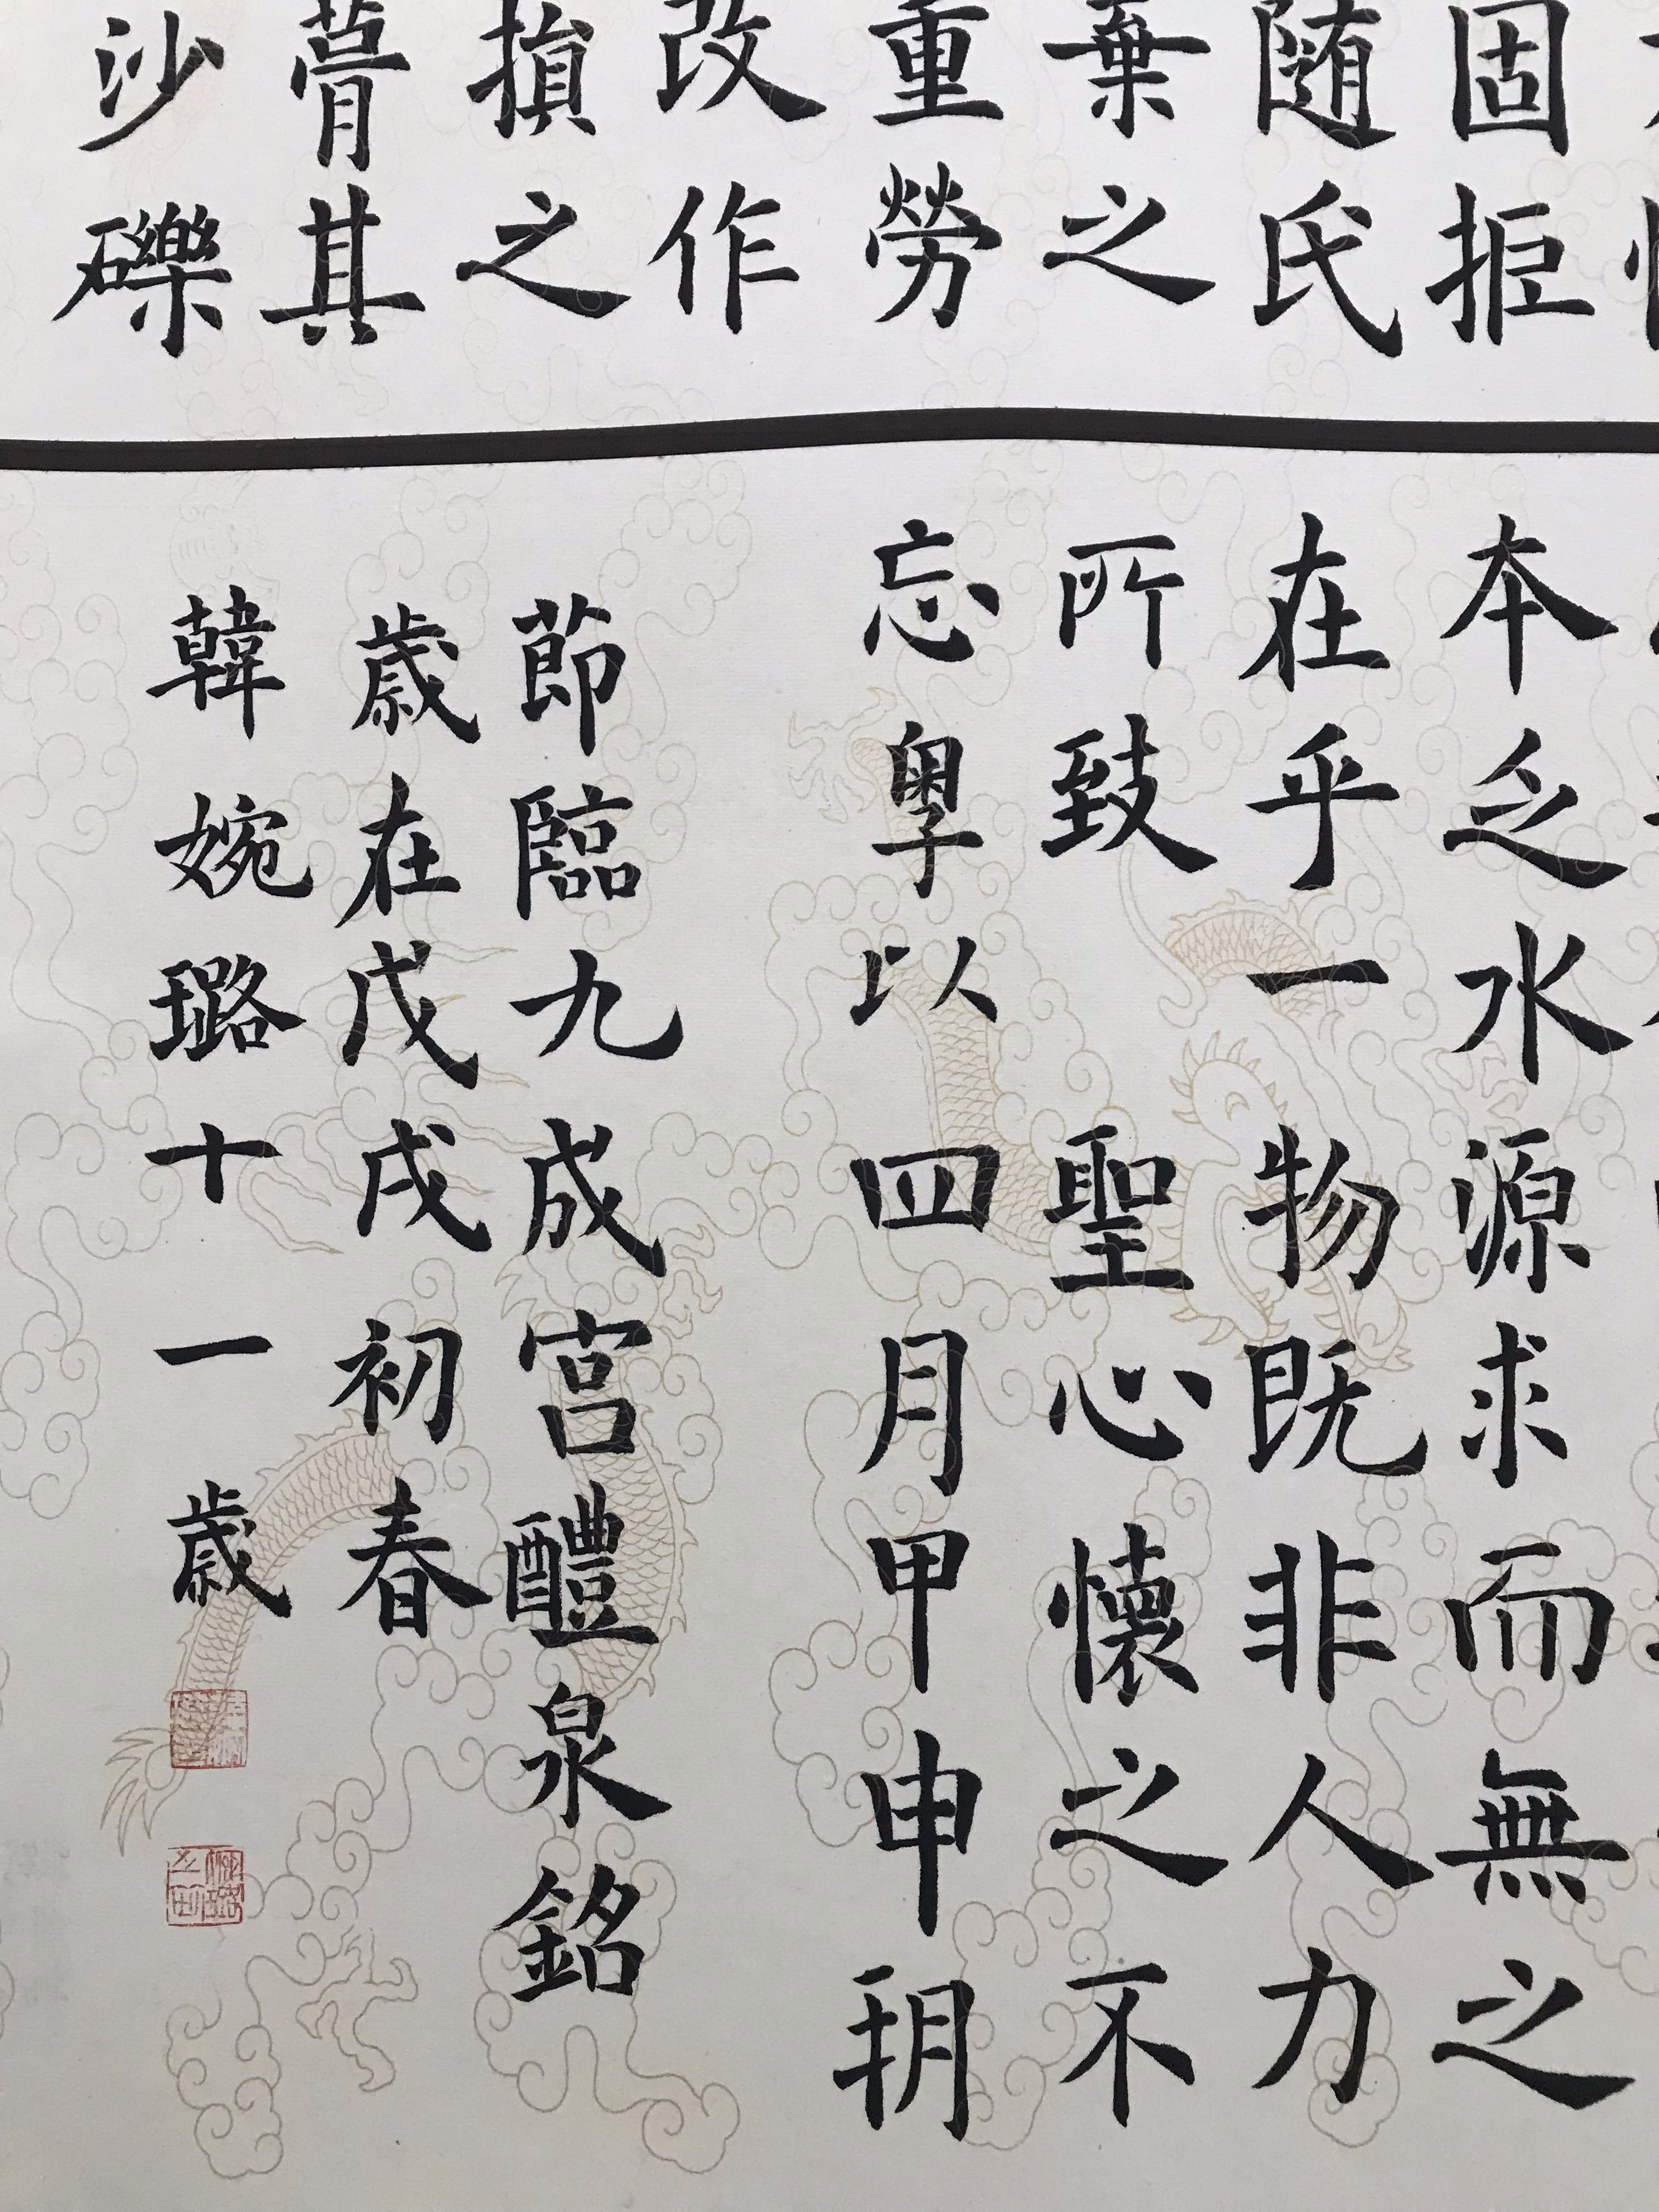 固拒
随氏
棄之
重勞
改作
損之
葺其
沙礫
本乏水源求而無之
在乎一物既非人力
所致聖心懷之不
忘粤以四月甲申朔
節臨九成宮醴泉銘
歲在戊戌初春
韓婉璐十一歲
婉璐之印